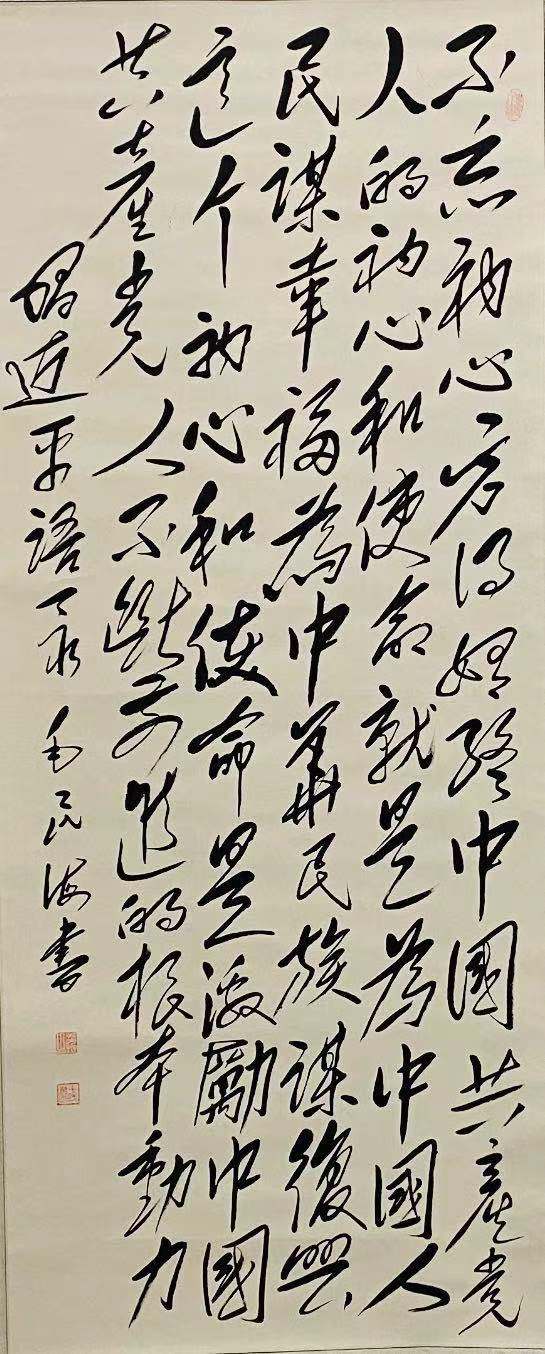 不忘初心方得始終中國共產党
人的初心和使命就是為中國人
民謀幸福為中華民族謀復興
這个初心和使命是激勵中國
共產党人不斷前進的根本動力
習近平語录 毛民海書